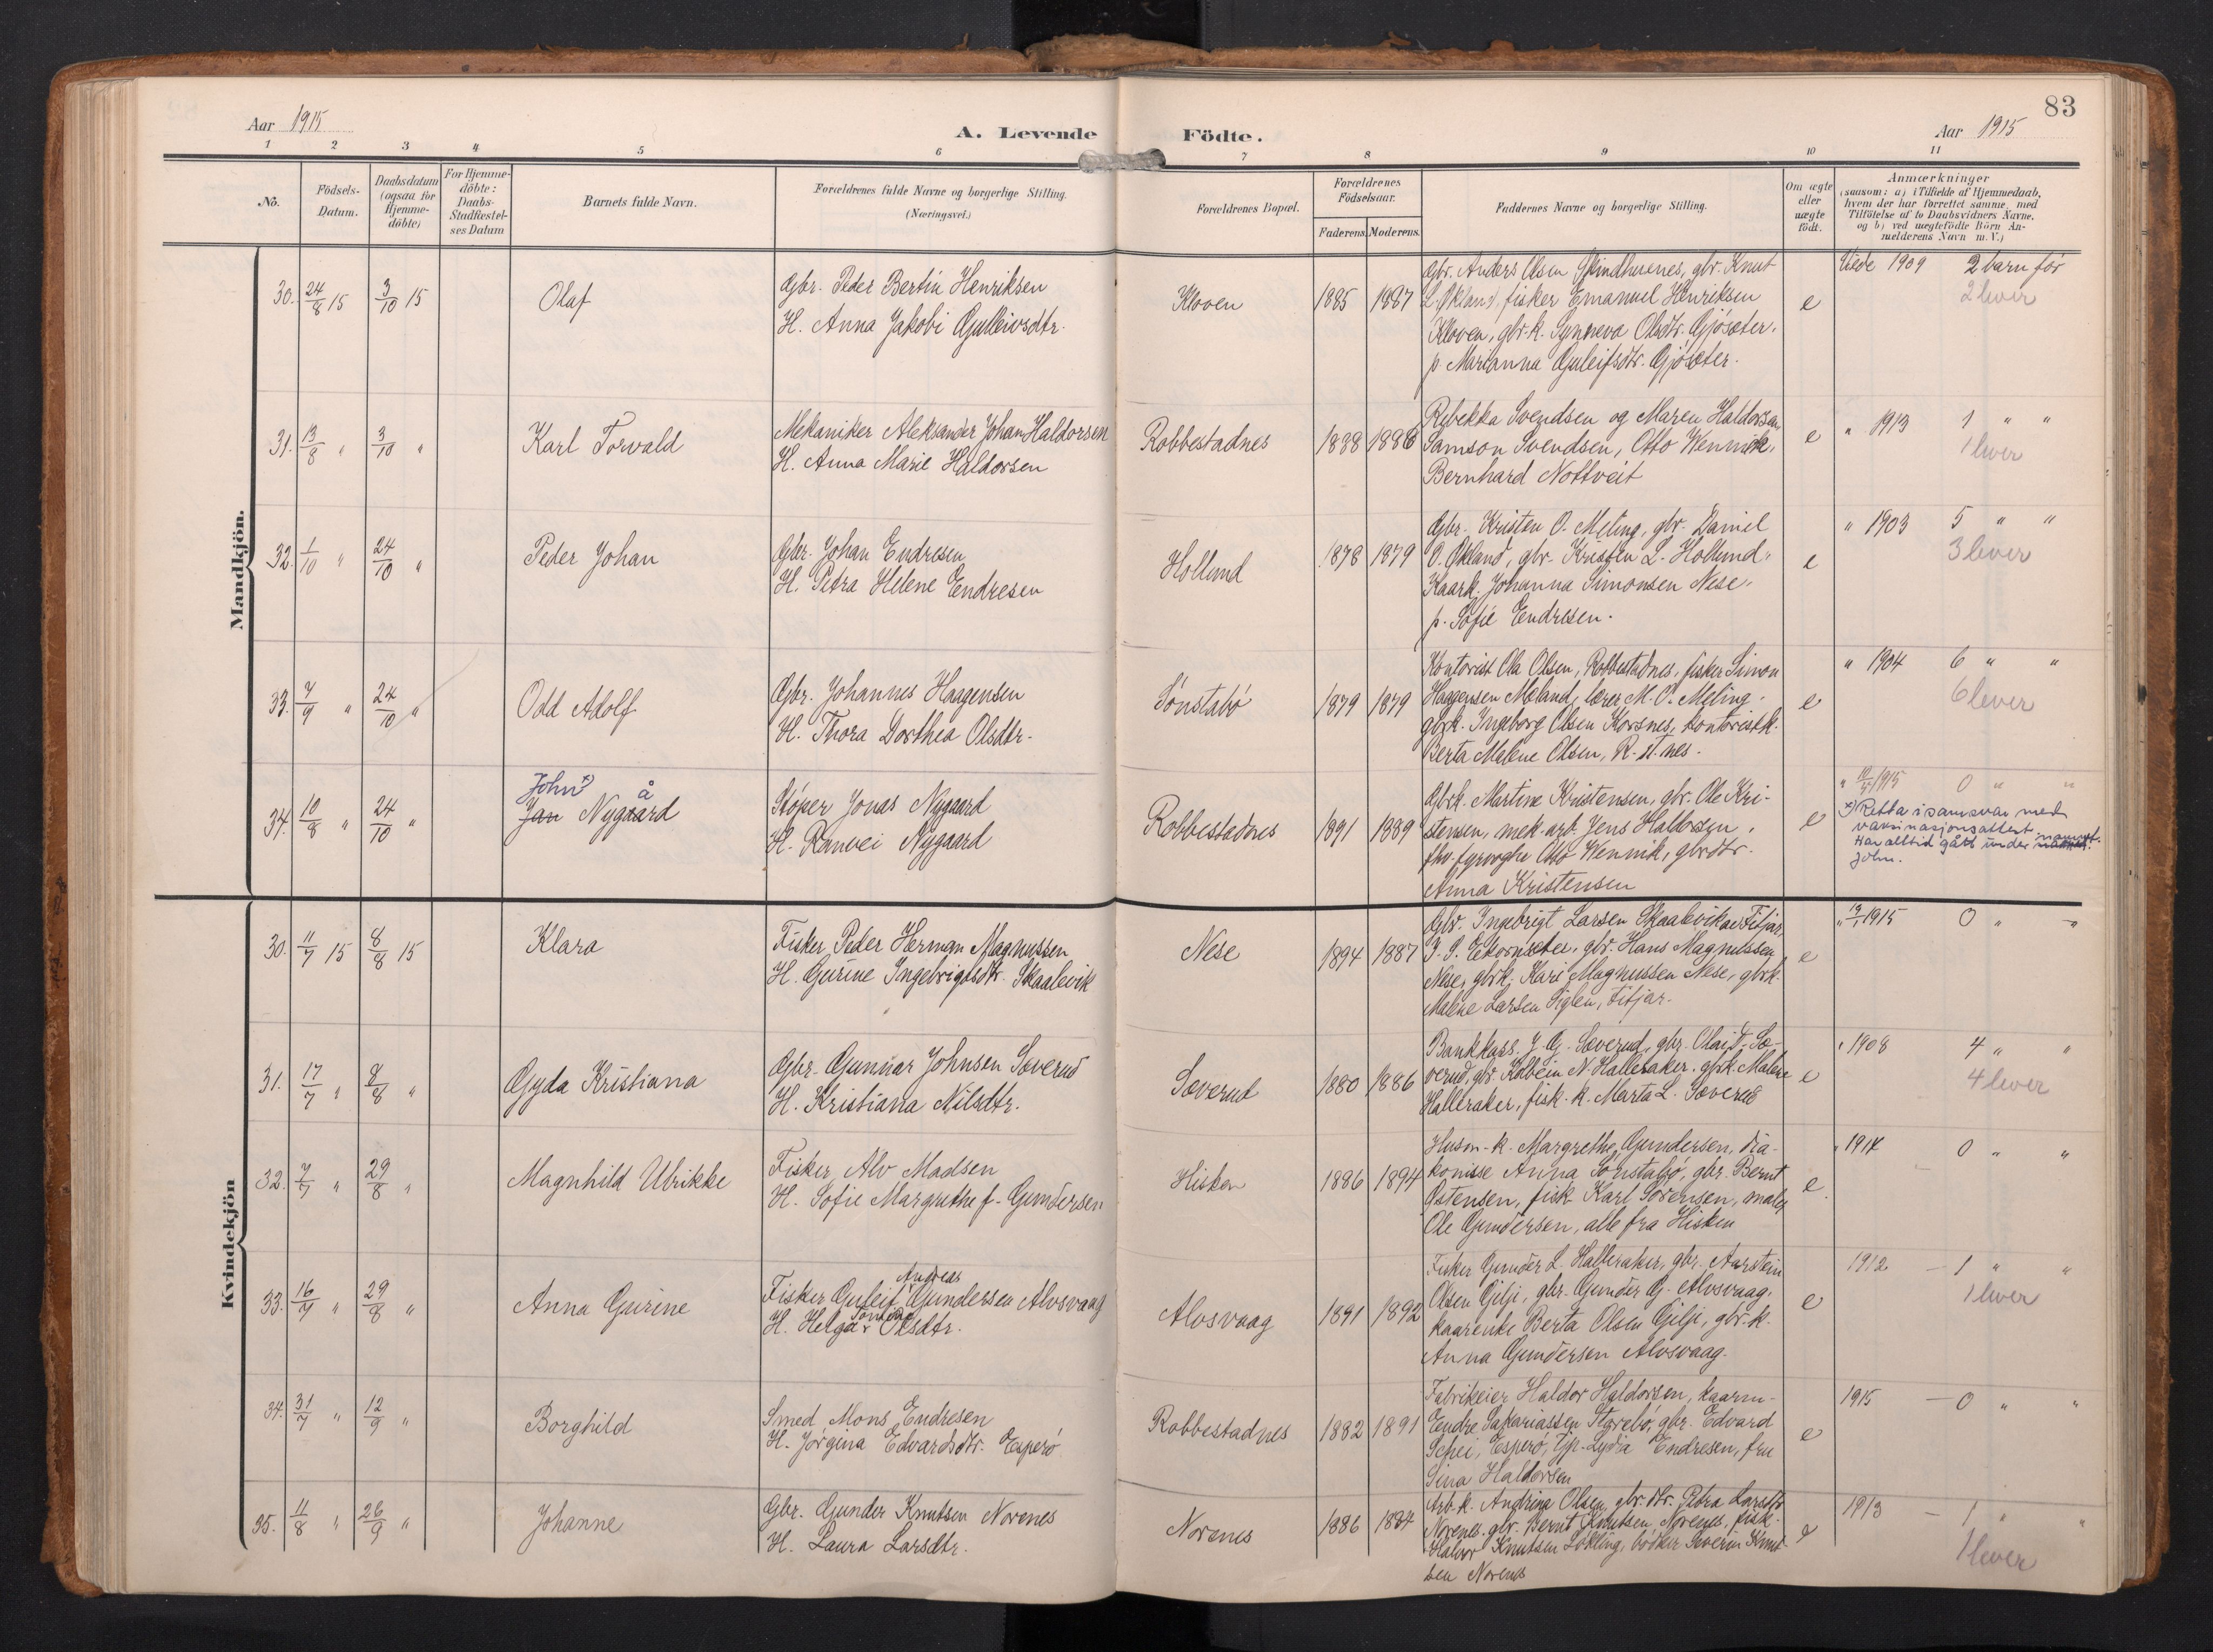 83
Aar 1915
A. Levende Födte.
Aar 1915
1 2 3 4 5 6 7 8 9 10 11
No.
Födsels-Datum.
Daabsdatum (ogsaa for Hjemme-döbte)
For Hjemme-döbte: Daabs-Stadfæstel-ses Datum
Barnets fulde Navn.
Forældrenes fulde Navne og borgerlige Stilling.
(Næringsvei.)
Forældrenes Bopæl.
Forældrenes Födselsaar.
Faderens. Moderens.
Faddernes Navne og borgerlige Stilling.
Om ægte eller uægte födt.
Anmærkninger
(saasom: a) i Tilfælde af Hjemmedaab,
hvem der har forrettet samme, med
Tilföielse af to Daabsvidners Navne,
og b) ved uægtefödte Börn An-
melderens Navn m. V.)
Mandkjön.
30. 24/8 15 3/10 15
Olaf
Gbr. Peder Bertin Henriksen
H. Anna Jakobi Gulleivsdtr.
Kloven
1885 1887
Gbr. Anders Olsen Grindhuenes, gbr. Knut
L. Økland, fisker Emanuel Henriksen
Kloven, gbr.k. Synneva Olsdtr. Gjösæter.
p. Marianna Guleifsdtr. Gjösæter.
e
Viede 1909 2 barn før
2 lever
31. 13/8 " 3/10 "
Karl Torvald
Mekaniker Aleksander Johan Haldorsen
H. Anna Marie Haldorsen
Robbestadnes
1888 1886
Rebekka Svendsen og Maren Haldorsen
Samson Svendsen, Otto Wennik,
Bernhard Nottveit
e
" 1913 1 " "
1 lever
32. 1/10 " 24/10 "
Peder Johan
Gbr. Johan Endresen
H. Petra Helene Endresen
Hollund
1878 1879
Gbr. Kristen O. Meling, gbr. Daniel
O. Økland, gbr. Kristen L. Hollund.
Kaark. Johanna Simonsen Nese.
p. Sofie Endresen.
e
" 1903 5 " "
3 lever
33. 7/9 " 24/10 "
Odd Adolf
Gbr. Johannes Haagensen
H. Thora Dorthea Olsdtr.
Sönstabö
1879 1879
Kontorist Ola Olsen, Robbestadnes, fisker Simon
Haagensen Meland, lærer M. O. Meling.
gbrk. Ingeborg Olsen Korsnes, kontoristk.
Berta Malene Olsen, R. st. nes.
e
" 1904 6 " "
6 lever
34. 10/8 " 24/10 "
John x) å
Jan Nygaard
Støper Jonas Nygaard
H. Ranvei Nygaard
Robbestadnes
1891 1889
Gbrk. Martine Kristensen, gbr. Ole Kri-
stensen, mek. arb. Jens Haldorsen,
fhv. fyrvogter Otto Wennik, gbrdtr.
Anna Kristensen
e
1915 0 " "
x) Retta i samsvar med
vaksinasjonsattest.
Har alltid gått under namnet
John.
Kvindekjön
30. 11/7 15 8/8 15
Klara
Fisker Peder Herman Magnussen
H. Gurine Ingebrigtsdtr. Skaalevik
Nese
1894 1887
Gbr. Ingebrigt Larsen Skaalevik av Fitjar
gbr. Hans Magnussen
Nese, gbrk. Kari Magnussen Nese, gbrk.
Malene Larsen Siglen, Fitjar.
e
1915 0 " "
31. 17/7 " 8/8 "
Gyda Kristiana
Gbr. Gunnar Johnsen Sæverud
H. Kristiana Nilsdtr.
Sæverud
1880 1886
Bankkass. J. G. Sæverud, gbr. Olai T. Sæ-
verud, gbr. Kolbein N. Halleraker, gbrk. Malene
Halleraker, fisk. k. Marta L. Sæverud
e
" 1908 4 " "
4 lever
32. 7/7 " 29/8 "
Magnhild Ulrikke
Fisker Alv Madsen
H. Sofie Margrethe f. Gundersen
Hisken
1886 1894
Husm.-k. Margrethe Gundersen, dia-
konisse Anna Sønstabø, gbr. Bernt
Östensen, fisk. Karl Sørensen, maler
Ole Gundersen, alle fra Hisken
e
" 1914 0 " "
33. 16/7 " 29/8 "
Anna Gurine
Andreas
Fisker Guleif Gundersen Alvsvaag
H. Helga Olsdtr.
Alvsvaag
1891 1892
Fisker Gunder L. Halleraker, gbr. Aarstein
Olsen Gilje, gbr. Gunder G. Alvsvaag.
kaarenke Berta Olsen Gilje, gbr. k.
Anna Gundersen Alvsvaag.
e
1912 — 1 " "
1 lever
34. 31/7 " 12/9 "
Borghild
Smed Mons Endresen
H. Jörgina Edvardsdtr. Esperö
Robbestadnes
1882 1891
Fabrikeier Haldor Haldorsen, kaarm.
Endre Sakariassen Styrebö, gbr. Edvard
Esperö, Tjp. Lydia Endresen, fru
Sina Haldorsen
e
1915 — 0 " "
35. 11/8 " 26/9 "
Johanne
Gbr. Gunder Knutsen Norenes
H. Laura Larsdtr.
Norenes
1886 1884
Arb.k. Andrina Olsen, gbr. dtr. Petra Larsdtr
Norenes. gbr. Bernt Knutsen Norenes, fisk.
Halvor Knutsen Løkling, bödker Severin Knut
sen Norenes
e
1913 — 1 " "
1 lever